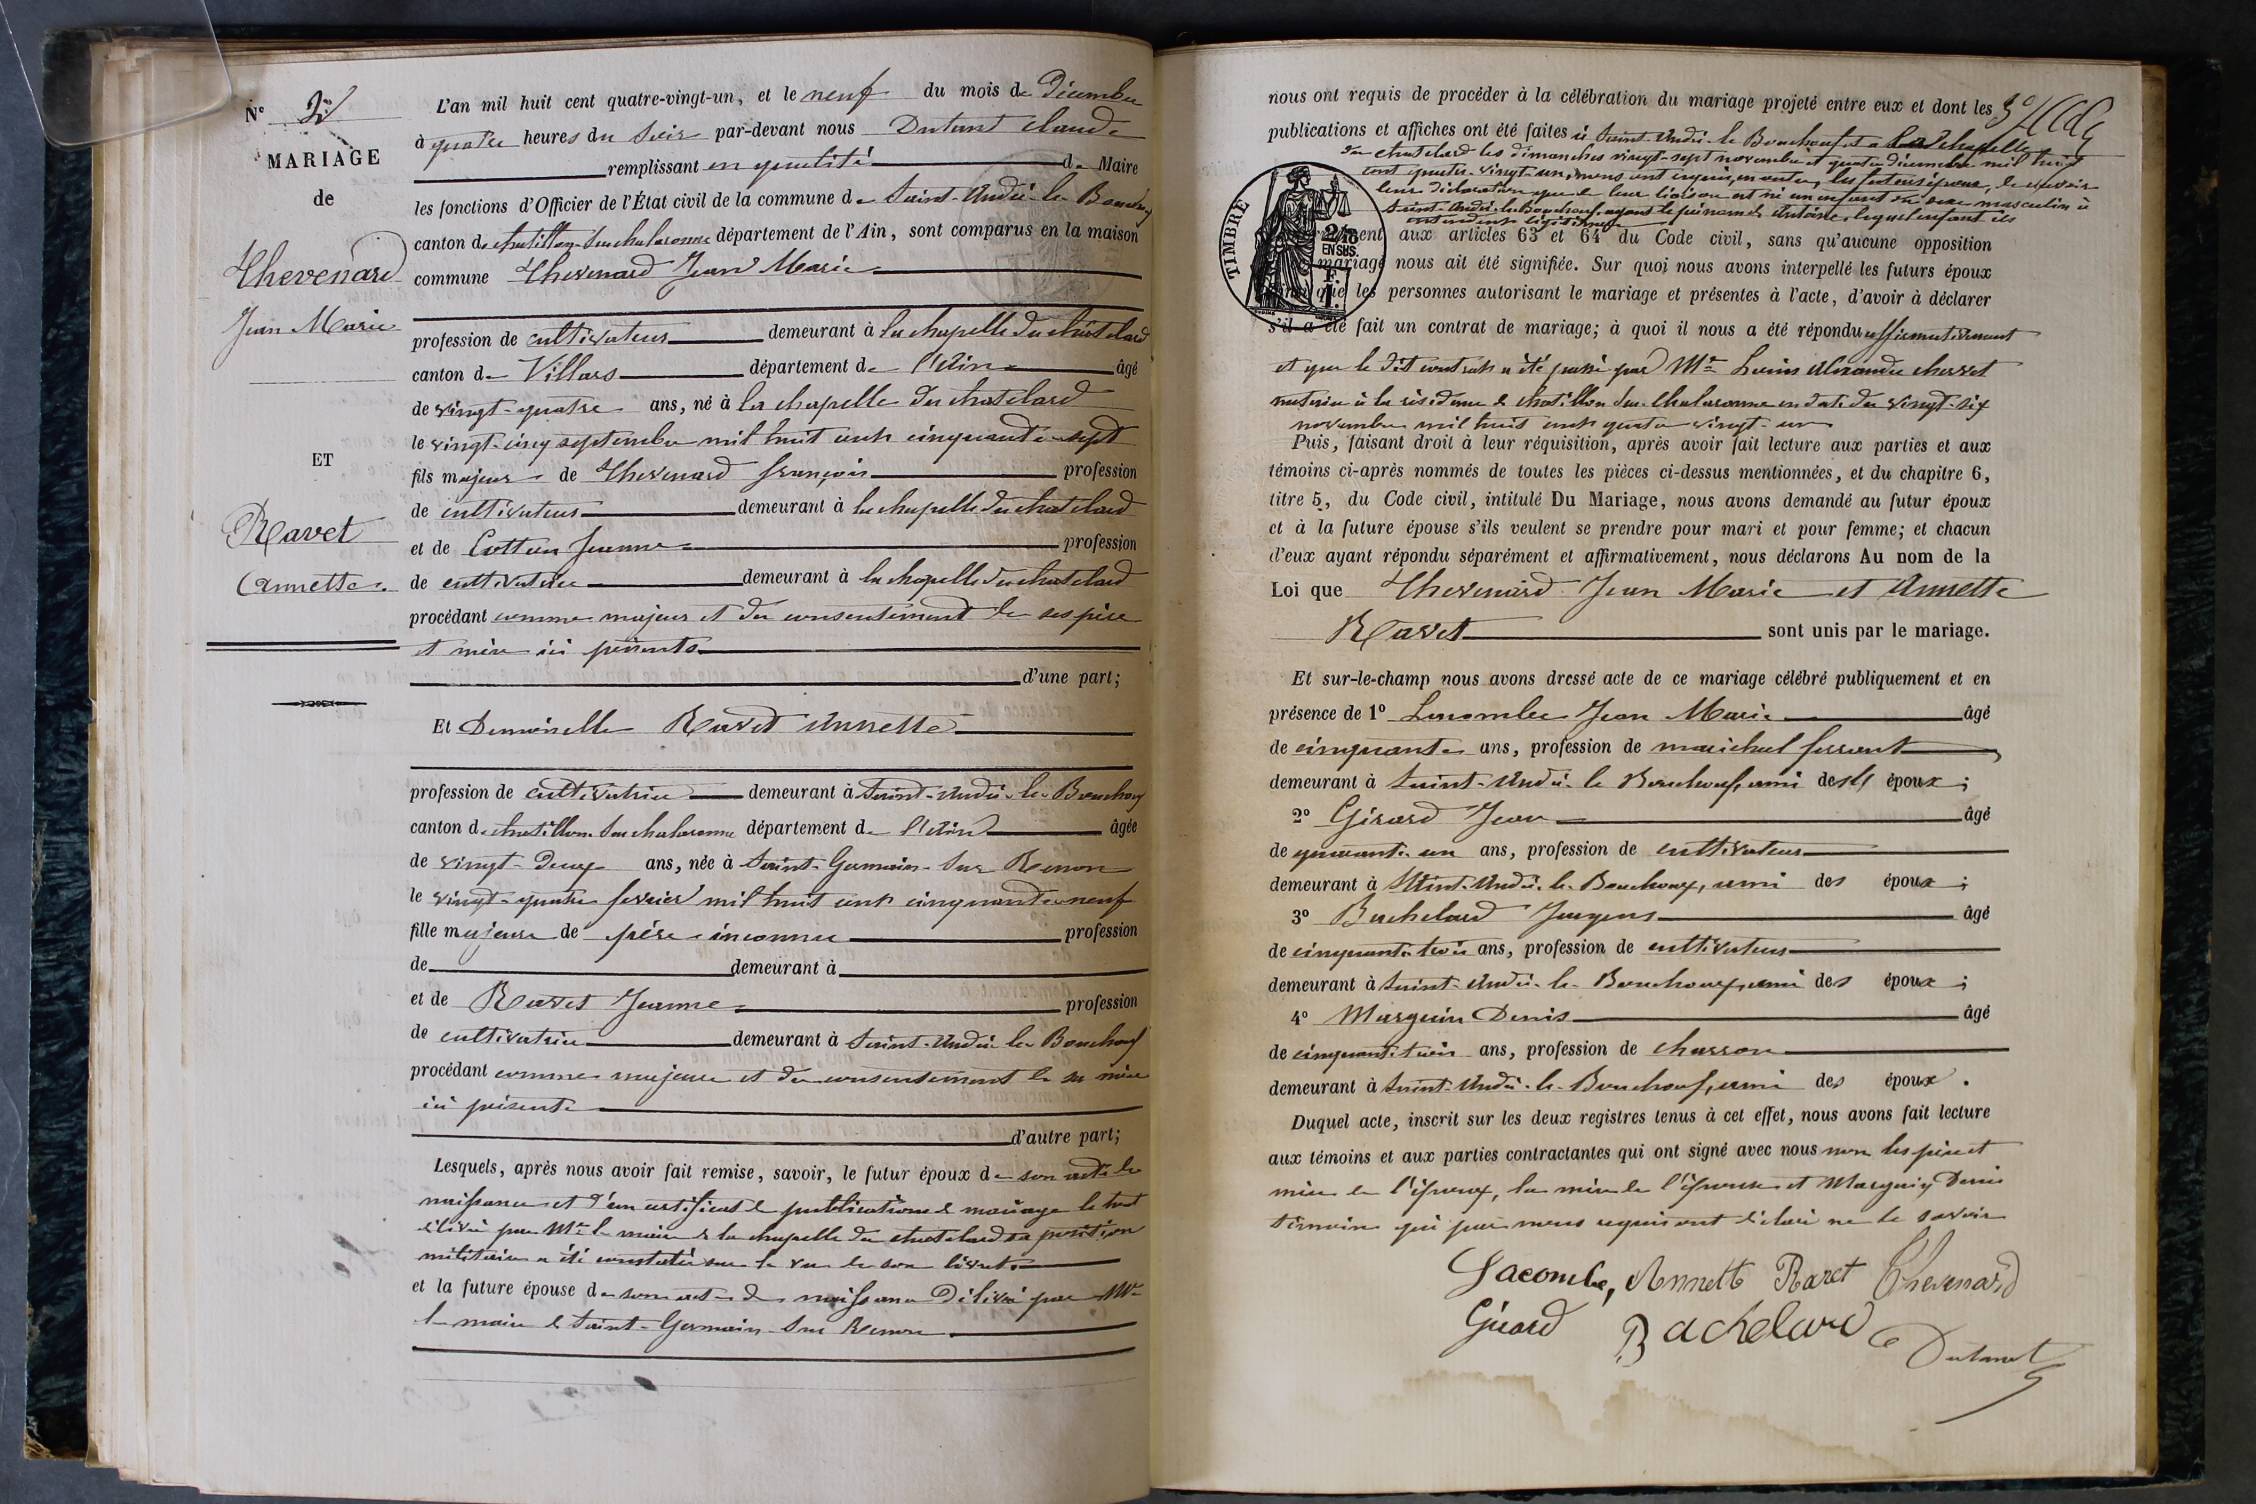 N° 2
MARIAGE
de
Thevenard
Jean Marie
ET
Ravet
Annette.
L'an mil huit cent quatre-vingt-un, et le neuf du mois de Décembre
à quatre heures du Soir par-devant nous Dutant Claude
remplissant en qualité de Maire
les fonctions d'Officier de l'État civil de la commune de Saint-André-le-Bouchoux
canton de Chatillon-Sur-Chalaronne département de l'Ain, sont comparus en la maison
commune Thevenard Jean Marie
profession de cultivateur demeurant à la chapelle du châtelard
canton de Villars département de l'Ain âgé
de vingt-quatre ans, né à la chapelle du chatelard
le vingt-cinq septembre mil huit cent cinquante-sept
fils majeur de Thevenard françois profession
de cultivateur demeurant à la chapelle du chatelard
et de Cottin Jeanne profession
de cultivatrice demeurant à la chapelle du chatelard
procédant comme majeur et du consentement de ses père
et mère ici présents
d'une part;
Et Demoiselle Ravet Annette
profession de cultivatrice demeurant à Saint-André-le-Bouchoux
canton de chatillon-Sur-chalaronne département de l'Ain âgée
de vingt-deux ans, née à Saint-Germain-Sur Renon
le vingt-quatre fevrier mil huit cent cinquante-neuf
fille majeure de père inconnu profession
de demeurant à
et de Ravet Jeanne profession
de cultivatrice demeurant à Saint-André le Bouchoux
procédant comme majeure et du consentement de sa mère
ici présente
d'autre part;
Lesquels, après nous avoir fait remise, savoir, le futur époux de son acte de
naissance et d'un certificat de publications de mariage le tout
délivré par Mr le maire de la chapelle du chatelard sa position
militaire a été constatée sur le vu de son livret.
et la future épouse de son acte de naissance Délivré par Mr
le maire de Saint-Germain-Sur Renon
nous ont requis de procéder à la célébration du mariage projeté entre eux et dont les
publications et affiches ont été faites à Saint-André-le Bouchoux et à La chapelle
du chatelard les dimanches vingt-sept novembre et quatre décembre mil huit
cent quatre-vingt-un, nous ont requis, en outre, les futurs époux, de recevoir
leur déclaration que de leur liaison est né un enfant du sexe masculin à
Saint-André-le-Bouchoux, ayant le prénom de Antoine, lequel enfant ils
entendent légitimer
TIMBRE
EN SUS.
aux articles 63 et 64 du Code civil, sans qu'aucune opposition
mariage nous ait été signifiée. Sur quoi nous avons interpellé les futurs époux
que les personnes autorisant le mariage et présentes à l'acte, d'avoir à déclarer
s'il a été fait un contrat de mariage; à quoi il nous a été répondu affirmativement
et que le dit contrat a été passé par Me Louis Alexandre
notaire à la résidence de chatillon-sur-Chalaronne en date du vingt-six
novembre mil huit cent quatre vingt-un
Puis, faisant droit à leur réquisition, après avoir fait lecture aux parties et aux
témoins ci-après nommés de toutes les pièces ci-dessus mentionnées, et du chapitre 6,
titre 5, du Code civil, intitulé Du Mariage, nous avons demandé au futur époux
et à la future épouse s'ils veulent se prendre pour mari et pour femme; et chacun
d'eux ayant répondu séparément et affirmativement, nous déclarons Au nom de la
Loi que Thevenard Jean Marie et Annette
Ravet sont unis par le mariage.
Et sur-le-champ nous avons dressé acte de ce mariage célébré publiquement et en
présence de 1° Lacombe Jean Marie âgé
de cinquante ans, profession de maréchal ferrant
demeurant à Saint-André-le Bouchoux, ami des époux;
2° Girard Jean âgé
de quarante-un ans, profession de cultivateur
demeurant à Saint-André-le-Bouchoux, ami des époux;
3° Bachelard âgé
de cinquante-trois ans, profession de cultivateur
demeurant à Saint-André-le-Bouchoux, ami des époux;
4° Marguin Denis âgé
de cinquante-trois ans, profession de charron
demeurant à Saint-André-le-Bouchoux, ami des époux.
Duquel acte, inscrit sur les deux registres tenus à cet effet, nous avons fait lecture
aux témoins et aux parties contractantes qui ont signé avec nous non les père et
mère de l'époux, la mère de l'épouse et Marguin Denis
témoin qui par nous requis ont déclaré ne le savoir
Lacombe, Annette Ravet Thevenard
Girard Bachelard Dutant